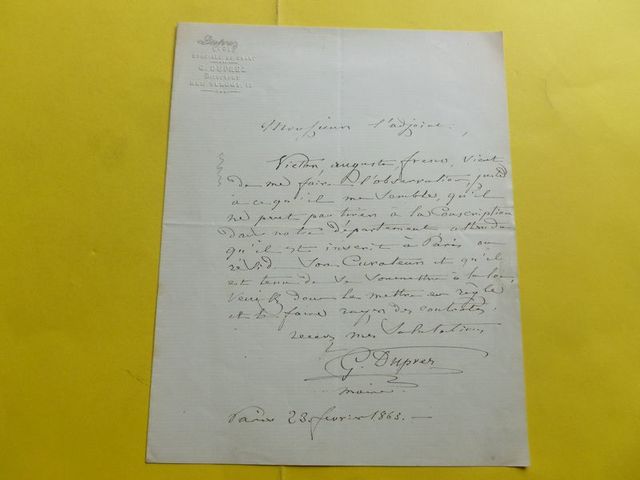 Duprez
G. DUPREZ
Monsieur l'adjoint,
Victor, auguste frenc, vient
de me faire l'observation, juste
à ce qu'il me semble, qu'il
ne peut pas tirer à la Conscription
dans notre Département attendu
qu'il est inscrit à Paris où
résid Son Curateur et qu'il
est tenu de Se Soumettre à la loi
Veuillez donc le mettre en règle
et le faire rayer des contrôles.
recevez mes Salutations
G. Duprez
maire
Paris 23 février 1863.